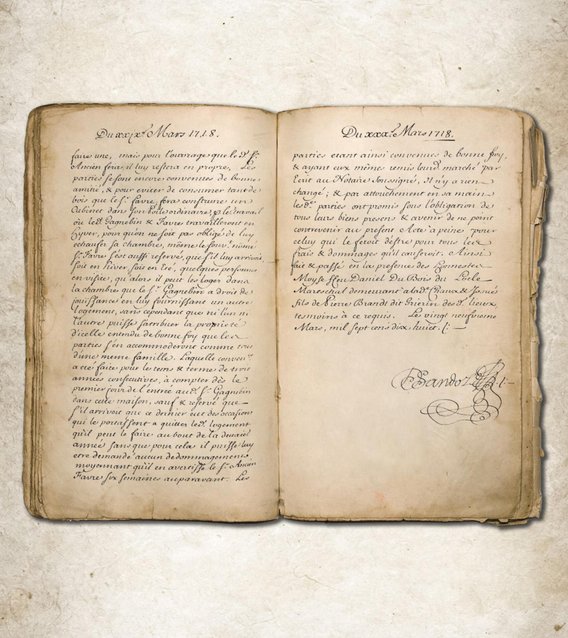 Du xxix.e Mars 1718.
faire une, mais pour l'ouvrage que le d.t S.r
Ancien feras il luy restera en propre, Les
parties se sont encore convenues de bonne
amitié, & pour eviter de consumer tant de
bois que le S.r favre fera construire un
Cabinet dans son Poille ordinaire
ou led.t Gagnebin & Favre travailleront en
hyver, pour qu'on ne soit pas obligé de luy
echaufer sa chambre, même le
S.r Favre s'est aussi reservé, que s'il luy arrivoit
soit en hiver soit en été, quelques personnes
en visite, qu'alors il peut les loger dans
la chambre que le S.r Gagnebin a droit de
jouissance en luy fournissant un autre
logement, sans cependant que ne l'un ni
l'autre puisse s'attribuer la proprieté
d'icelle entendu de bonne foy que les
parties s'en accommoderont comme tous
d'une meme famille. Laquelle conven.n
a eté faite pour le tems & terme de trois
années consecutives, à compter dès le
premier jour de l'entrée aud.t S.r Gagnebin
dans cette maison, sauf & reservé que
s'il arrivoit que ce dernier eut des occasions
qui le portassent a quitter led.t logement
qu'il peut le faire au bout de la
année sans que pour cela il puisse luy
etre demandé aucun dedommagement
moyennant qu'il en avertisse le S.r Ancien
Favre six semaines auparavant. Les
Du xxx.e Mars 1718.
parties etant ainsi convenues de bonne foy
& ayant eux mêmes remis leurd marché par
écrit au Notaire soussigné, Il n'y a rien
changé; & par attouchement en sa main
les d.t parties ont promis sous l'obligation de
tous leurs biens presens & avenir de ne point
contrevenir au present Acte à peine pour
celuy qui le feroit d'etre pour tous les
frais & dommages qu'il causeroit. Ainsi
fait & passé en la presence des honnestes
Moyse ffeu Daniel Du Bois du Locle
Mareschal demeurant à la d.te Chaux & Josué
fils de Pierre Brandt dit Grierin des d.t lieux
tesmoins à ce requis. Le vingt neufviesme
Mars, mil sept cens dix huict
Sandoz